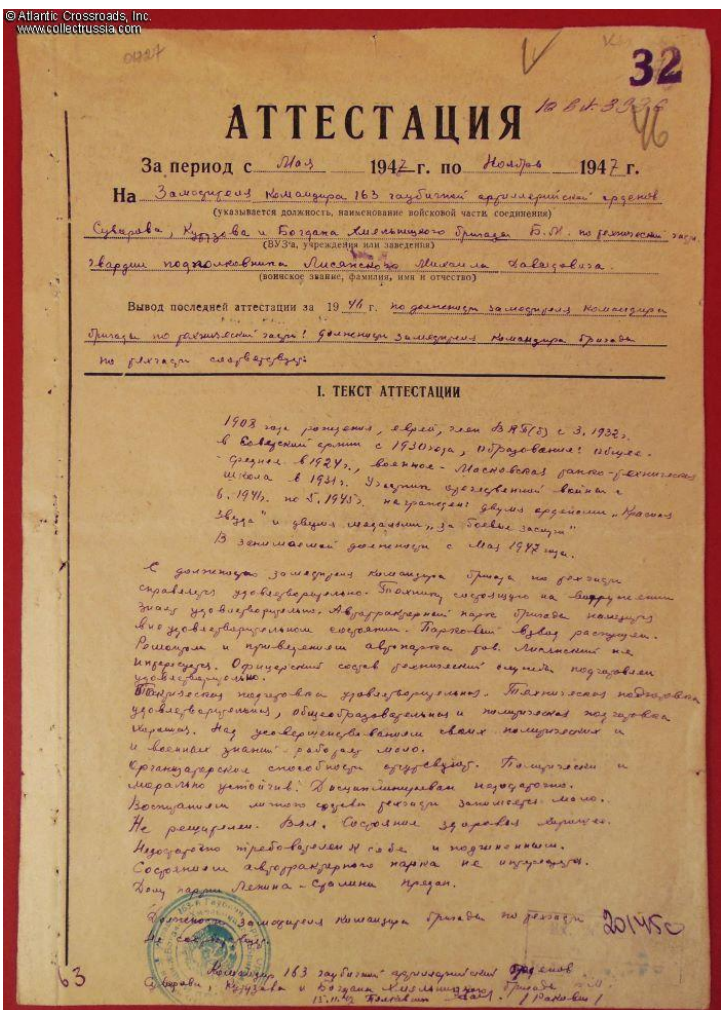 © Atlantic Crossroads, Inc.
www.collectrussia.com
01727
32
46
АТТЕСТАЦИЯ
За период с Мая 1947 г. по Ноябрь 1947 г.
На Заместителя командира 163 гаубичной артиллерийской орденов
(указывается должность, наименование войсковой части, соединения)
Суворова, Кутузова и Богдана Хмельницкого бригады Б.М. по технической части
(ВУЗ'а, учреждения или заведения)
гвардии подполковника Лисянского Михаила Давыдовича.
(воинское звание, фамилия, имя и отчество)
Вывод последней аттестации за 1946 г. по должности заместителя командира
бригады по технической части: должности заместителя командира бригады
по техчасти соответствует.
I. ТЕКСТ АТТЕСТАЦИИ
1903 года рождения, еврей, член ВКП(б) с 3.1932г.
в Советской армии с 1930 года, образование: общее-
среднее в 1924г., военное - Московская танко-техническая
школа в 1931г. Участник отечественной войны с
6.1941г. по 5.1945г. награжден: двумя орденами „Красная
Звезда" и двумя медалями „За боевые заслуги"
В занимаемой должности с Мая 1947 года.
С должностью заместителя командира бригады по техчасти
справляется удовлетворительно. Технику состоящую на вооружении
знает удовлетворительно. Автотракторный парк бригады находится
в неудовлетворительном состоянии. Парковый взвод распущен.
Ремонтом и приведением автопарка тов. Лисянский не
интересуется. Офицерский состав технической службы подготовлен
удовлетворительно.
Тактическая подготовка удовлетворительная. Техническая подготовка
удовлетворительная, общеобразовательная и политическая подготовка
хорошая. Над усовершенствованием своих политических и
и военных знаний - работает мало.
Организаторские способности отсутствуют. Политически и
морально устойчив. Дисциплинирован недостаточно.
Воспитанием личного состава техчасти занимается мало.
Не решителен. Вял. Состояние здоровья хорошее.
Недостаточно требователен к себе и подчиненным.
Состоянием автотракторного парка не интересуется.
Делу партии Ленина - Сталина предан.
Должности заместителя командира бригады по техчасти
не соответствует.
201450
Командир 163 гаубичной артиллерийской орденов
Суворова, Кутузова и Богдана Хмельницкого бригады Б.М.
15.11.47 Полковник /Ракович/
63